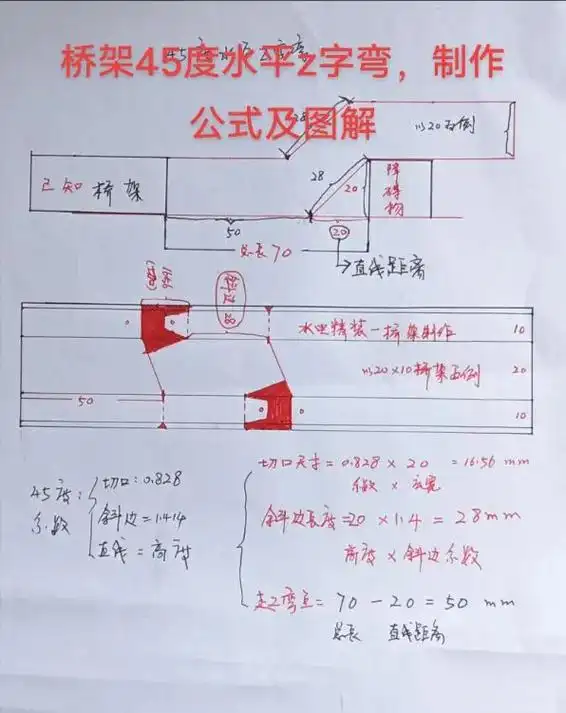 桥架45度水平z字弯，制作
公式及图解
28
以20为例
已知桥架
28
20
障碍物
50
20
总长70
直线距离
斜边28
水电精装一桥架制作
10
以20×10桥架为例
20
50
10
45度:
系数
切口:0.828
斜边=1.414
直线=高度
切口尺寸=0.828×20=16.56mm
系数×底宽
斜边长度=20×1.4=28mm
高度×斜边系数
起弯点=70-20=50mm
总长 直线距离